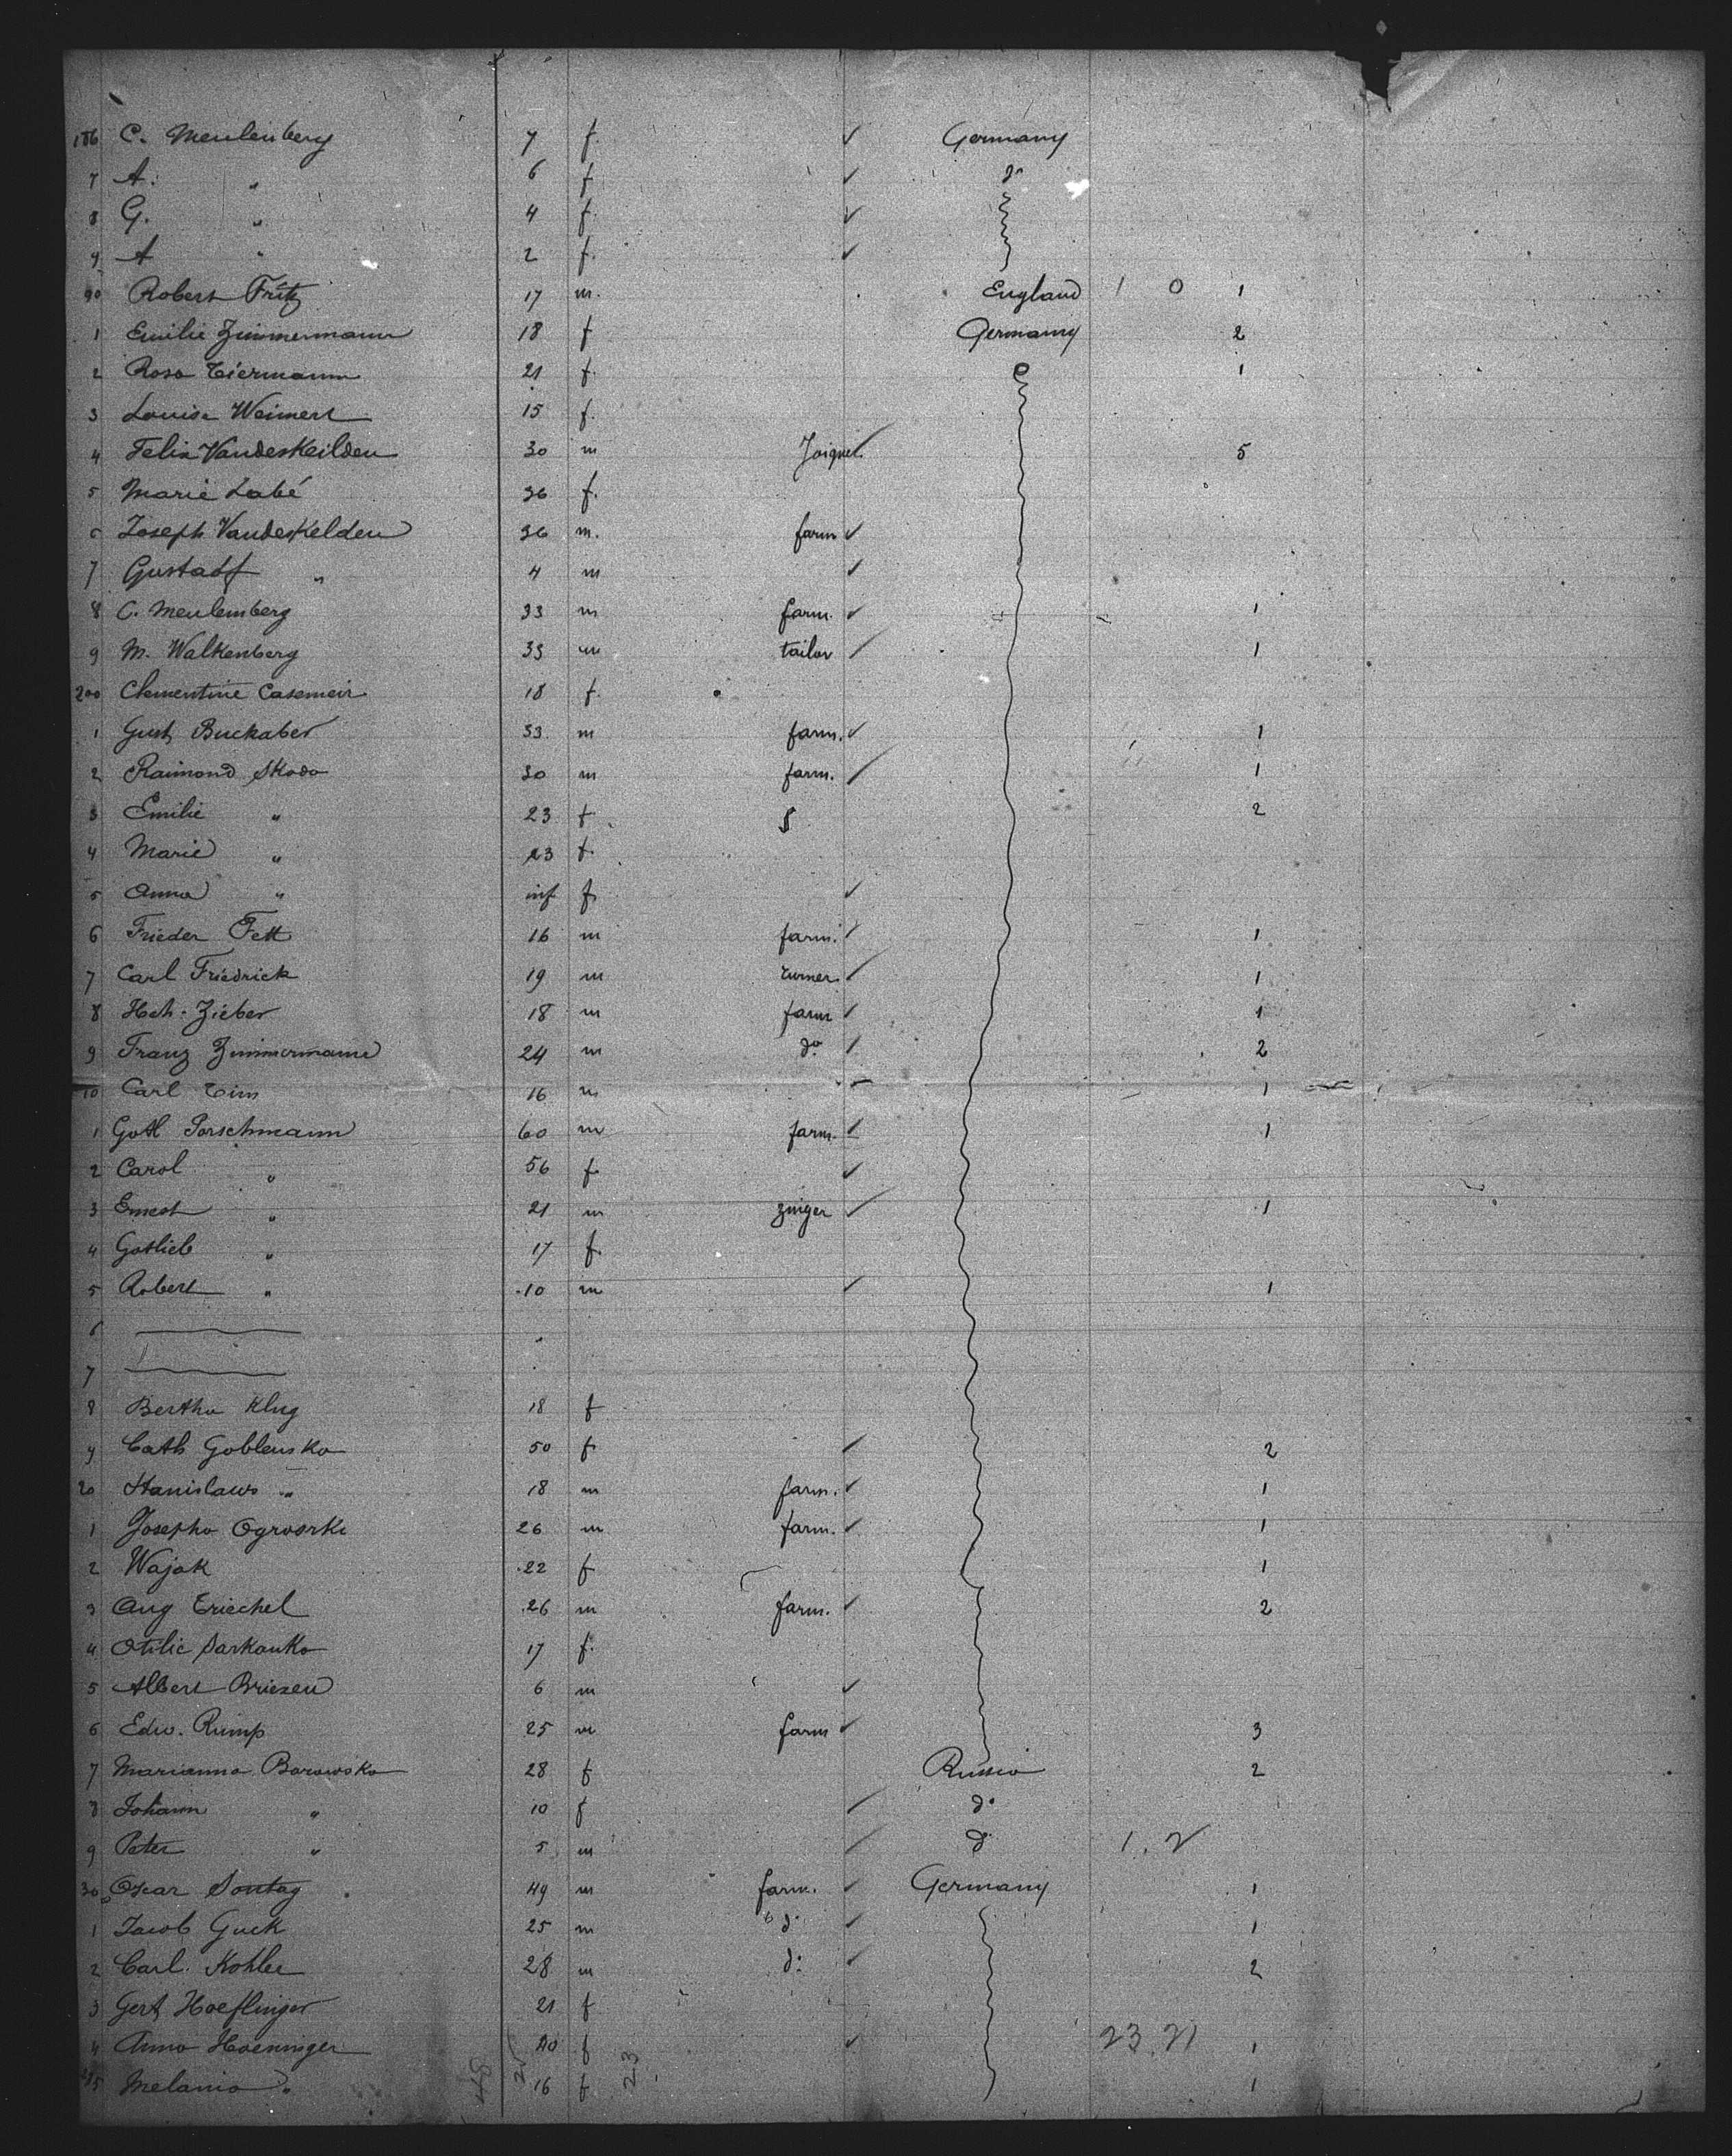 186 C. Meulenberg 7 f. ✓ Germany
7 A. " 6 f ✓ do
8 G. " 4 f. ✓
9 A " 2 f. ✓
90 Robert Fritz 17 m. England 1 0 1
1 Emilie Zimmermann 18 f Germany 2
2 Rosa Tiermann 21 f. 1
3 Louise Weimert 15 f.
4 Felix Vandeskeilden 30 m ✓ 5
5 Marie Labé 36 f.
6 Joseph Vandeskelden 36 m. farm ✓
7 Gustadf " 4 m ✓
8 C. Meulemberg 33 m farm. ✓ 1
9 M. Walkenberg 33 m tailor ✓ 1
200 Clementine Casemeir 18 f.
1 Gust Buckaber 33 m farm. ✓ 1
2 Raimond Skoda 30 m farm. ✓ 1
3 Emilie " 23 f 2
4 Marie " 23 f.
5 Anna " inf f ✓
6 Frieder Fett 16 m farm. ✓ 1
7 Carl Friedrick 19 m turner ✓ 1
8 Hch. Zieber 18 m farm ✓ 1
9 Franz Zimmermann 24 m do ✓ 2
10 Carl Tim 16 m 1
1 Gotl Porschmann 60 m farm. ✓ 1
2 Carol " 56 f ✓
3 Ernest " 21 m ✓ 1
4 Gotlieb " 17 f.
5 Robert " 10 m ✓ 1
6
7
8 Bertha Klug 18 f
9 Cath Goblenska 50 f ✓ 2
20 Stanislaws " 18 m farm. ✓ 1
1 Josepha Ogrosrki 26 m farm. ✓ 1
2 Wajak 22 f 1
3 Aug Eriechel 26 m farm. ✓ 2
4 Otilie Sarkanka 17 f.
5 Albert Briezen 6 m ✓
6 Edw. Rump 25 m farm ✓ 3
7 Marianna Borowska 28 f Russia 2
8 Johann " 10 f ✓ do
9 Peter " 5 m ✓ do 1. 2
30 Oscar Sontag 49 m farm. ✓ Germany 1
1 Jacob Guck 25 m do ✓ 1
2 Carl. Kohler 28 m do ✓ 2
3 Gert Hoeflinger 21 f
4 Anna Hoeninger 40 f ✓ 23. 21 1
5 Melania " 16 f 23 1